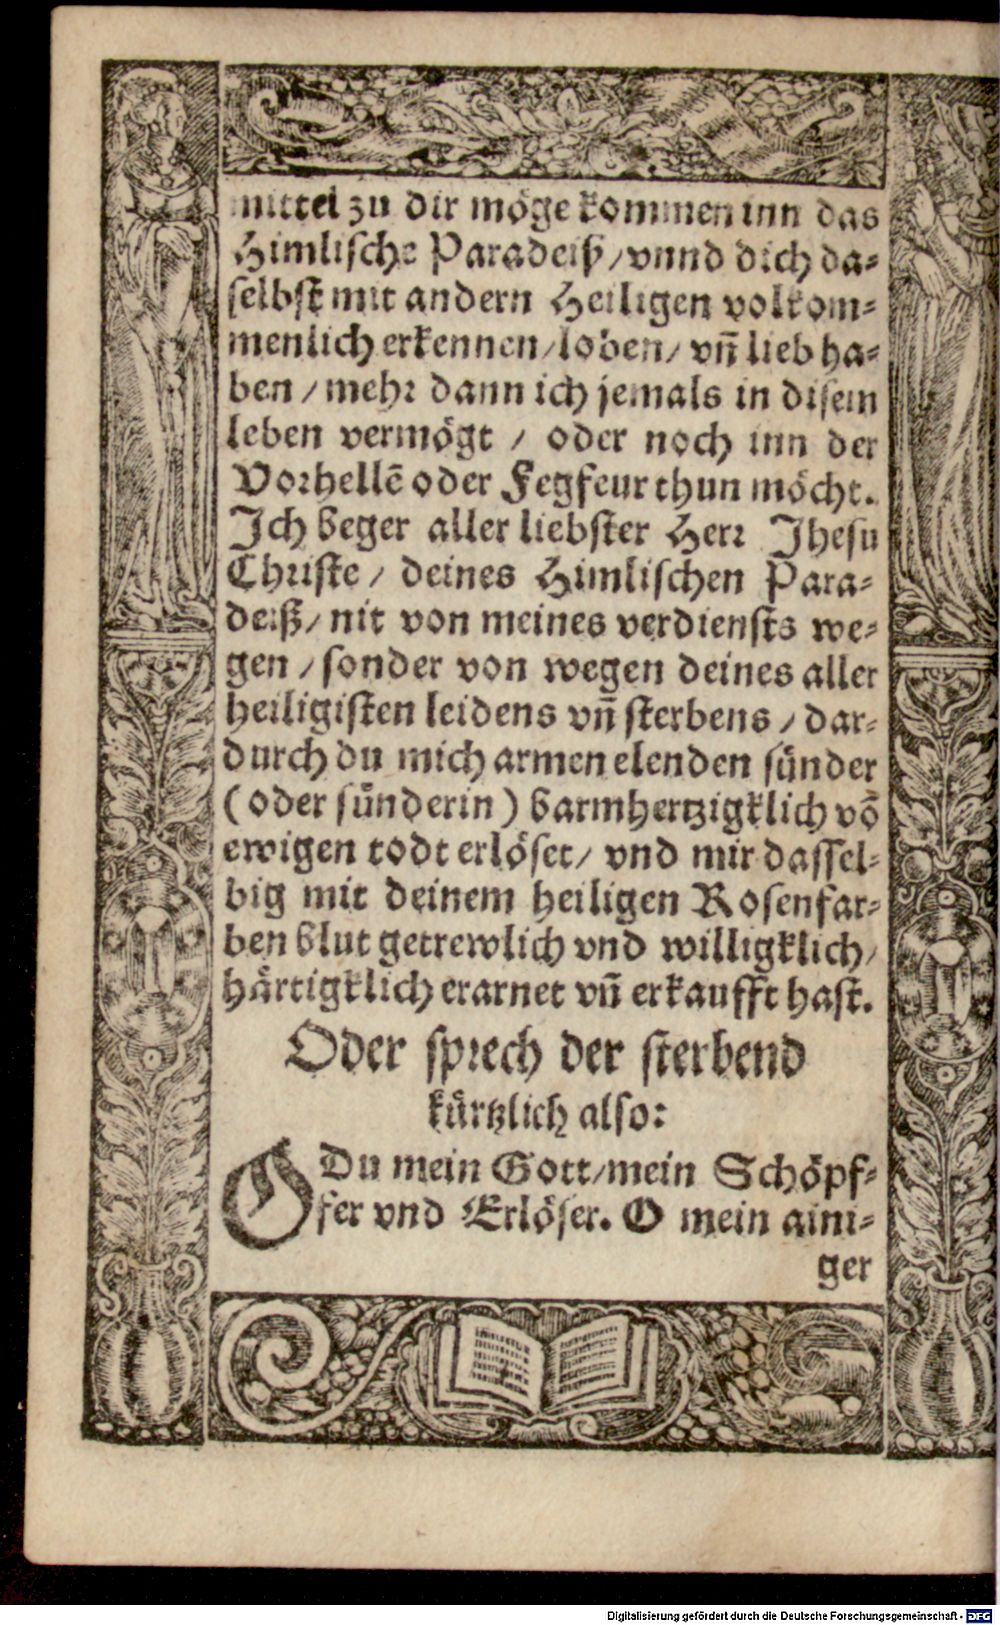 mittel zu dir möge kommen inn das
Himlische Paradeiß / vnnd dich da-
selbst mit andern Heiligen volkom-
menlich erkennen / loben / vñ lieb ha-
ben / mehr dann ich jemals in disem
leben vermögt / oder noch inn der
Vorhellẽ oder Fegfeur thun möcht.
Ich beger aller liebster Herr Jhesu
Christe / deines Himlischen Para-
deiß / nit von meines verdiensts we-
gen / sonder von wegen deines aller
heiligisten leidens vñ sterbens / dar-
durch du mich armen elenden sünder
(oder sünderin) barmhertzigklich võ
ewigen todt erlöset / vnd mir dassel-
big mit deinem heiligen Rosenfar-
ben blut getrewlich vnd willigklich /
härtigklich erarnet vñ erkaufft hast.
Oder sprech der sterbend
kürtzlich also:
O Du mein Gott / mein Schöpf-
fer vnd Erlöser. O mein aini-
ger
Digitalisierung gefördert durch die Deutsche Forschungsgemeinschaft - DFG